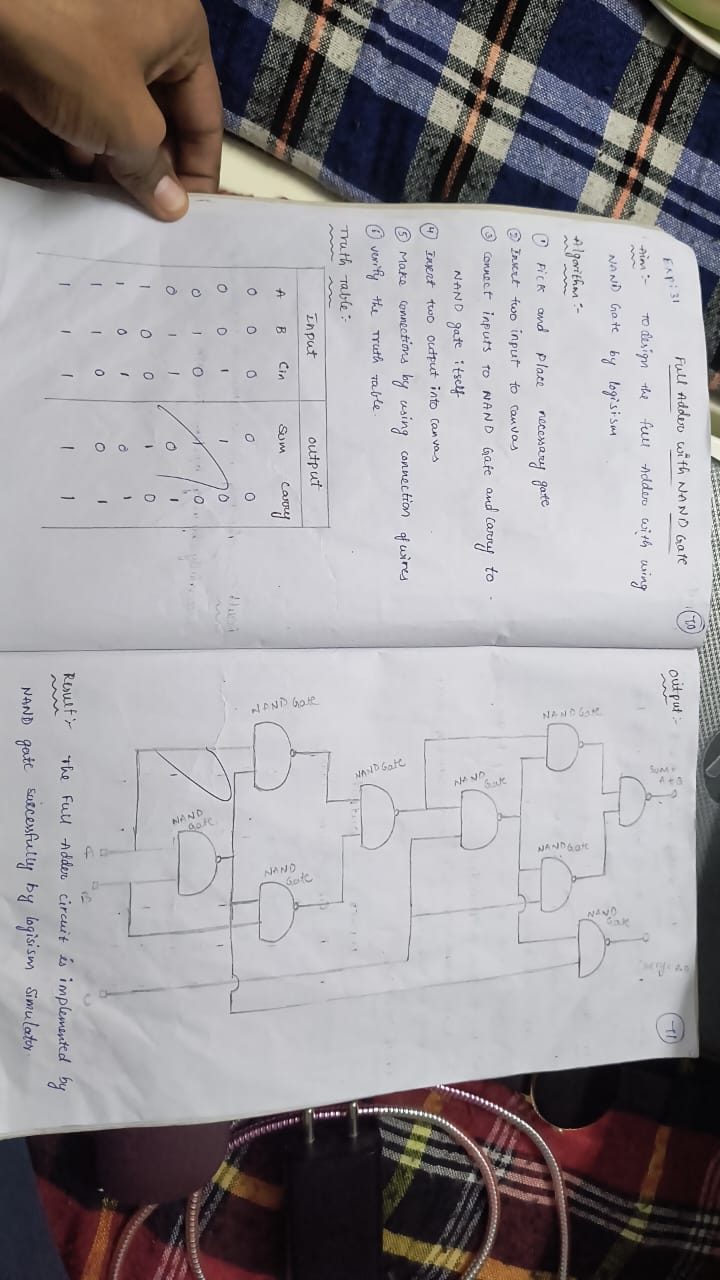 Exp: 31
Full Adder with NAND Gate
70
Aim:- To design the full Adder with using
NAND Gate by logisism
Algorithm:-
① Pick and Place necessary gate
② Insert two input to canvas
③ connect inputs to NAND Gate and carry to -
NAND gate itself
④ Insert two output into canvas
⑤ Make connections by using connection of wires
⑥ verify the Truth Table.
Truth Table:-
Input output
A B Cin Sum Carry
0 0 0 0 0
0 0 1 1 0
0 1 0 1 0
0 1 1 0 1
1 0 0 1 0
1 0 1 0 1
1 1 0 0 1
1 1 1 1 1
output:-
71
NAND Gate
NAND Gate
NAND Gate
NAND Gate
NAND Gate
NAND Gate
NAND Gate
NAND Gate
NAND Gate
B
Result:- The Full Adder circuit is implemented by
NAND gate successfully by logisism simulator